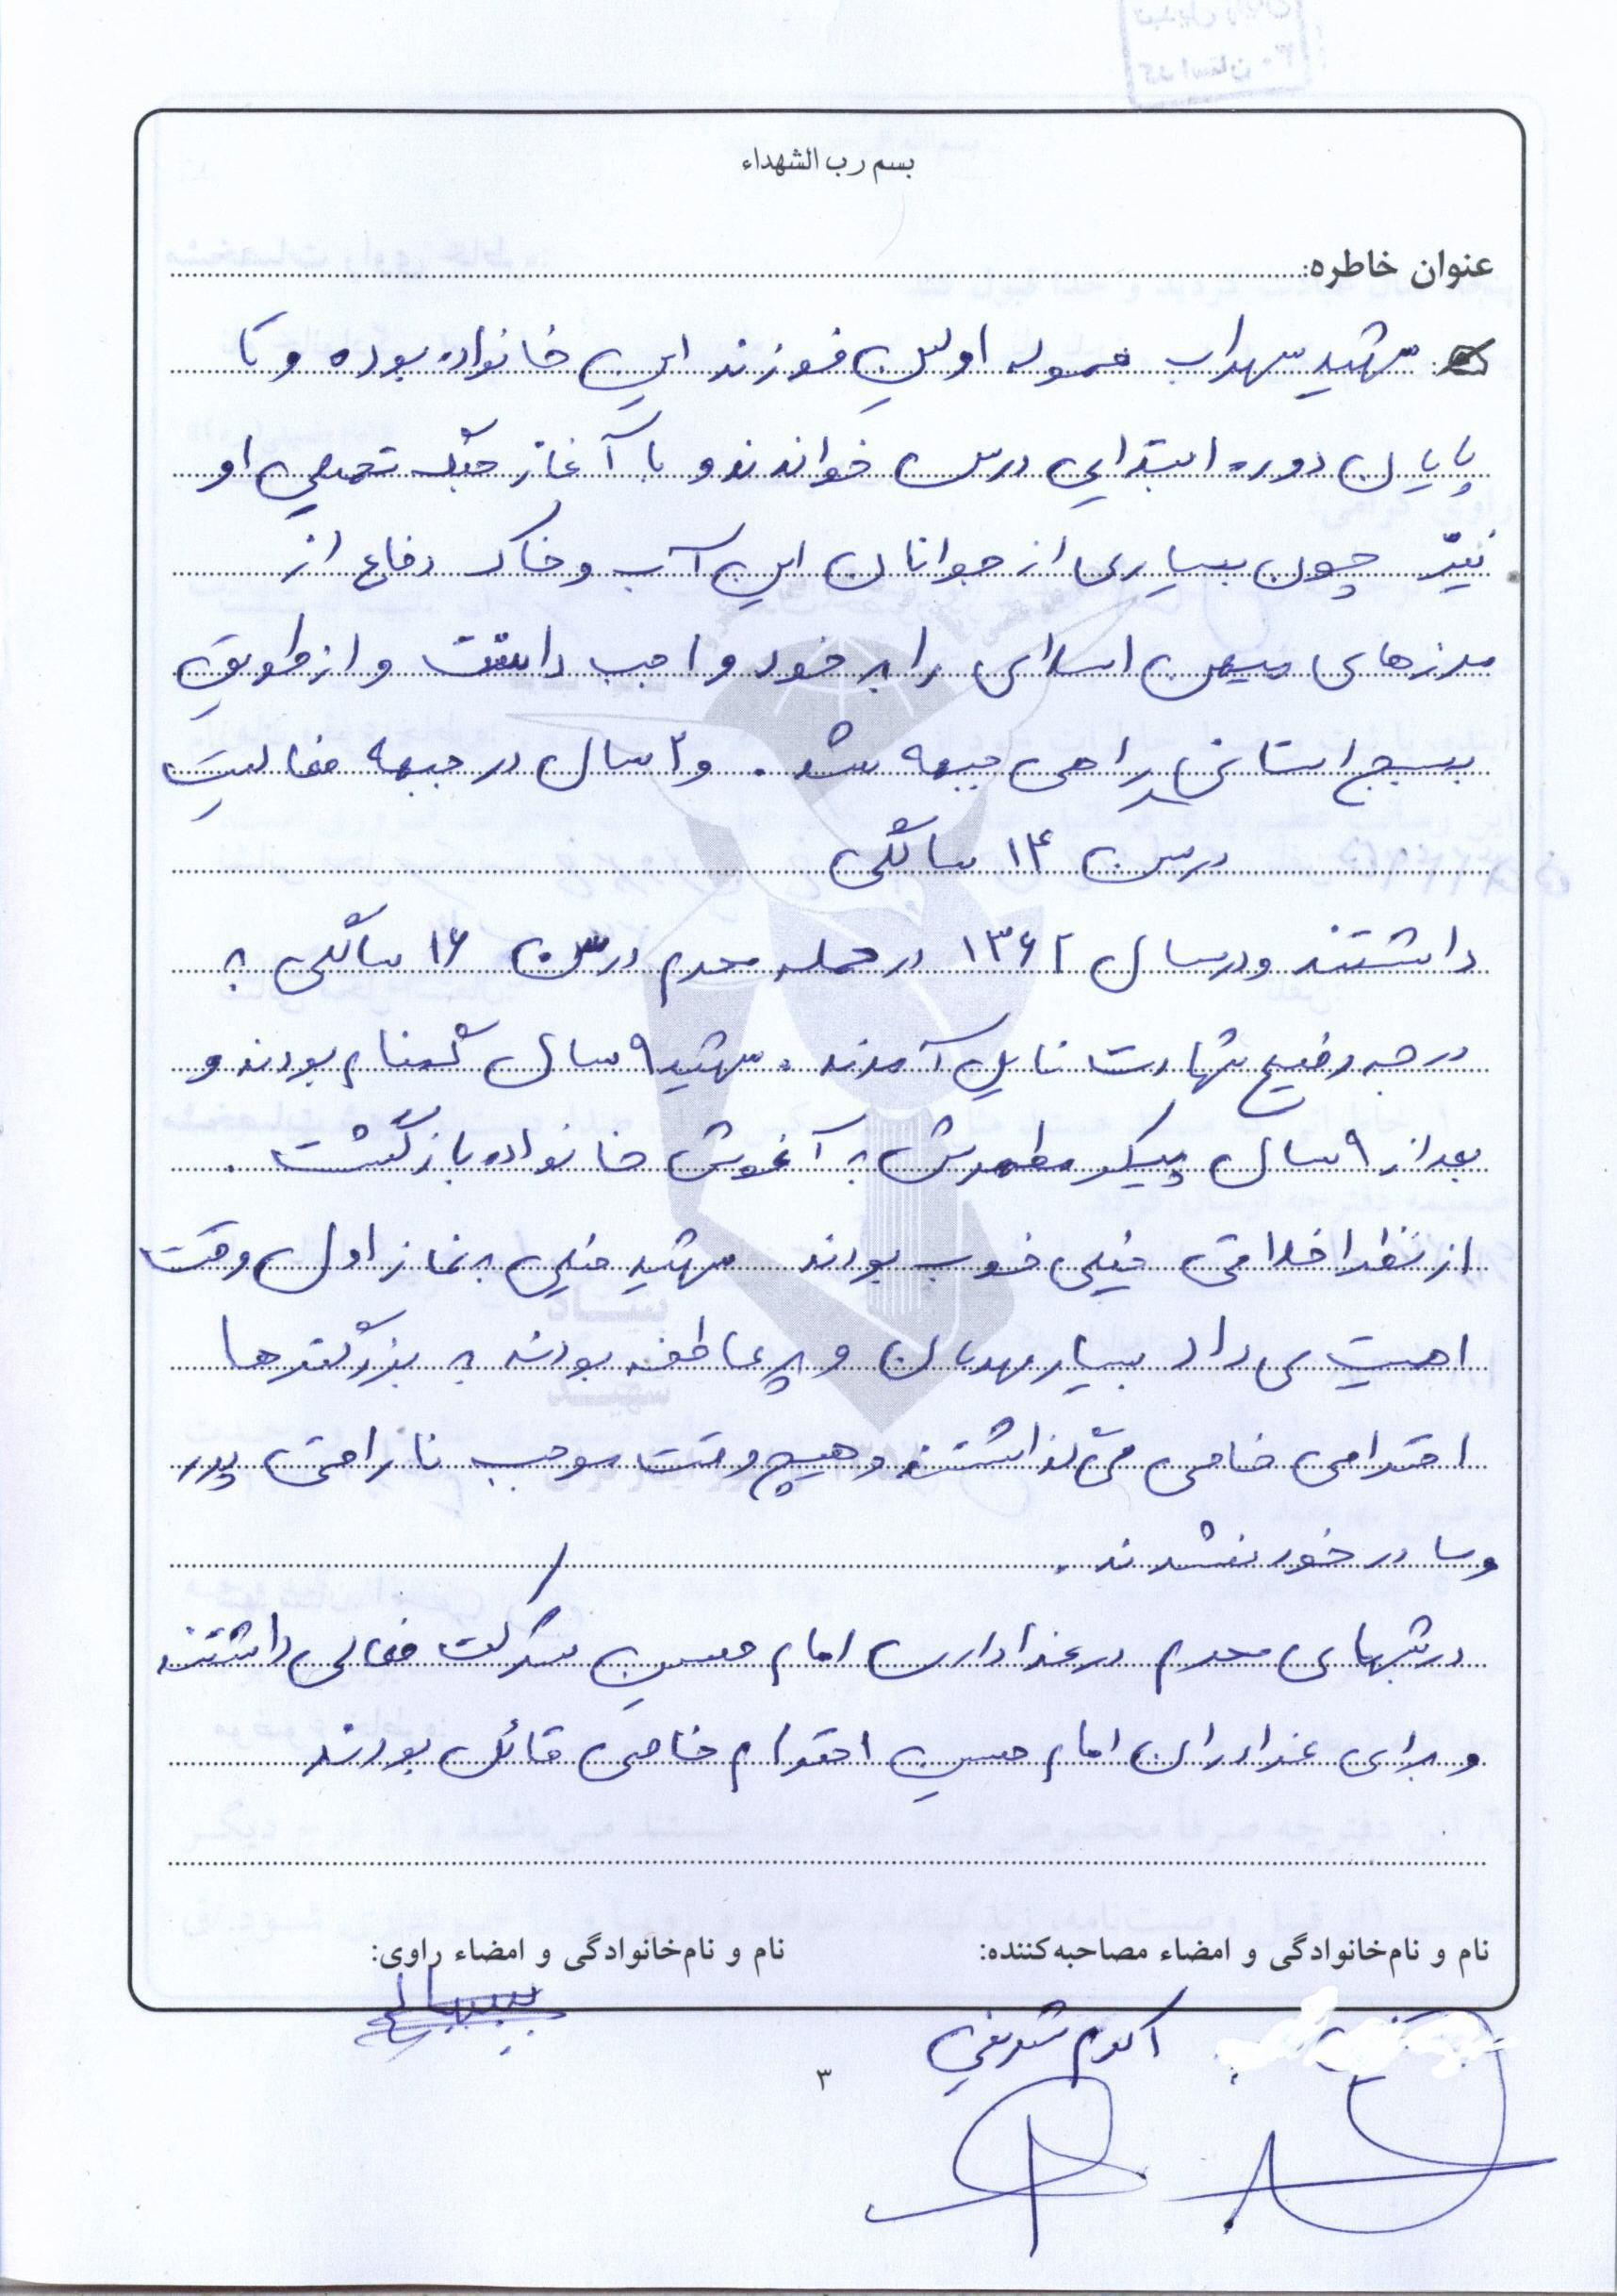 بسم رب الشهداء
عنوان خاطره:
شهید سهراب حموله اولین فرزند این خانواده بوده و تا
پایان دوره ابتدایی درس خواندند و با آغاز جنگ تحمیلی او
نیز چون بسیاری از جوانان این آب و خاک دفاع از
مرزهای میهن اسلامی را بر خود واجب داشت و از طریق
بسیج استانی راهی جبهه شد. و ۲ سال در جبهه فعالیت
درسن ۱۴ سالگی
داشتند و در سال ۱۳۶۲ در حمله محرم در سن ۱۶ سالگی به
درجه رفیع شهادت نایل آمدند. شهید ۹ سال گمنام بودند و
بعد از ۹ سال پیکر مطهرش به آغوش خانواده بازگشت.
از نظر اخلاقی خیلی خوب بودند شهید خیلی به نماز اول وقت
اهمیت می داد بسیار مهربان و پر عاطفه بودند به بزرگترها
احترامی خاصی می گذاشتند و هیچ وقت موجب ناراحتی پدر
و مادر خود نشدند.
در شبهای محرم در عزاداری امام حسین شرکت فعالی داشتند
و برای عزاداران امام حسین احترام خاصی قائل بودند
نام و نام‌خانوادگی و امضاء مصاحبه‌کننده:
نام و نام‌خانوادگی و امضاء راوی:
اکرم شریفی
۳